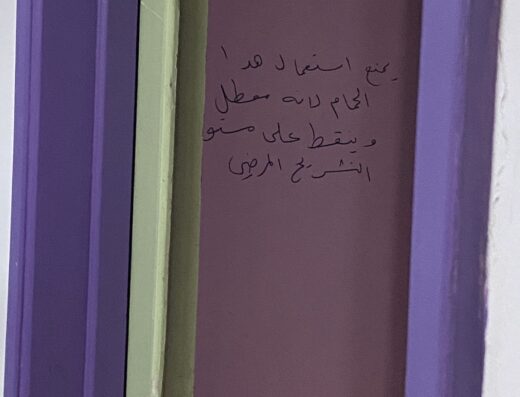 يمنع استعمال هدا
الحمام لانه معطل
وينقط على مستو
التشريح المرضي